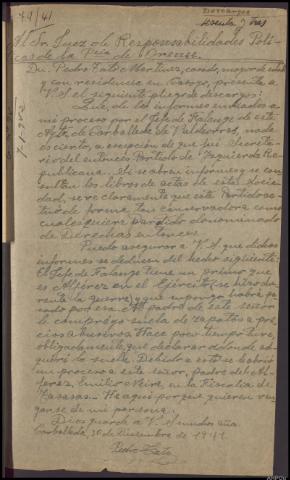 Descargos
Al Sr. Juez de Responsabilidades Políti-
cas de la Pcia de Orense.
Dn. Pedro Tato Martínez, casado, mayor de edad
y con residencia en Casoyo, presenta a
V.S. el siguiente pliego de descargos:
Que, de los informes enviados a
mi proceso por el Jefe de Falange de este
Ayto de Carballeda de Valdeorras, nada
es cierto, a excepción de que fui Secreta-
rio del entonces Partido de Izquierda Re-
publicana. Si se abren informes y se con-
sultan los libros de actas de esta Socie-
dad, se ve claramente que este Partido ac-
tuó de forma tan conservadora como
cualesquiera partido denominado
de Derechas entonces.
Puedo asegurar a V.S. que dichos
informes se deducen del hecho siguiente:
El Jefe de Falange tiene un primo que
es Alférez en el Ejército (se hizo du-
rante la guerra) y que supongo habrá pa-
sado por esa. Al padre de este señor
le compré yo suela de zapatos a pre-
cio abusivo. Hace poco tiempo tuve,
obligadamente, que declarar donde ad-
quirí la suela. Debido a esto se le abrió
un proceso a este señor, padre del Al-
férez, Emilio Neira, en la Fiscalía de
Tasas. He aquí porque quieren ven-
garse de mi persona.
Dios guarde a V.S. muchos años
Carballeda, 30 de Diciembre de 1941
Pedro Tato